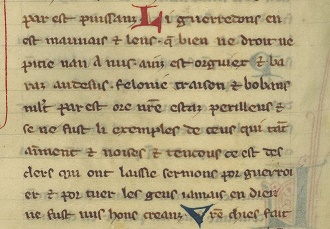 par est puissanz Li guerredons en
est mauuais & lens. q̃ bien ne droit ne
pitie nan a nus. ainz est orguiex & ba
rat au desus. felonie traison & bobans
mlt̃ par est ore nr̃e estaz perilleus &
se ne fust li exemples de ceus qui tãt
aiment & noises & tencons ce est des
clers qui ont laissie sermons por guerroi
er & por tuer les gens iamais en dieu
ne fust nus hons creanz Nr̃e chies fait